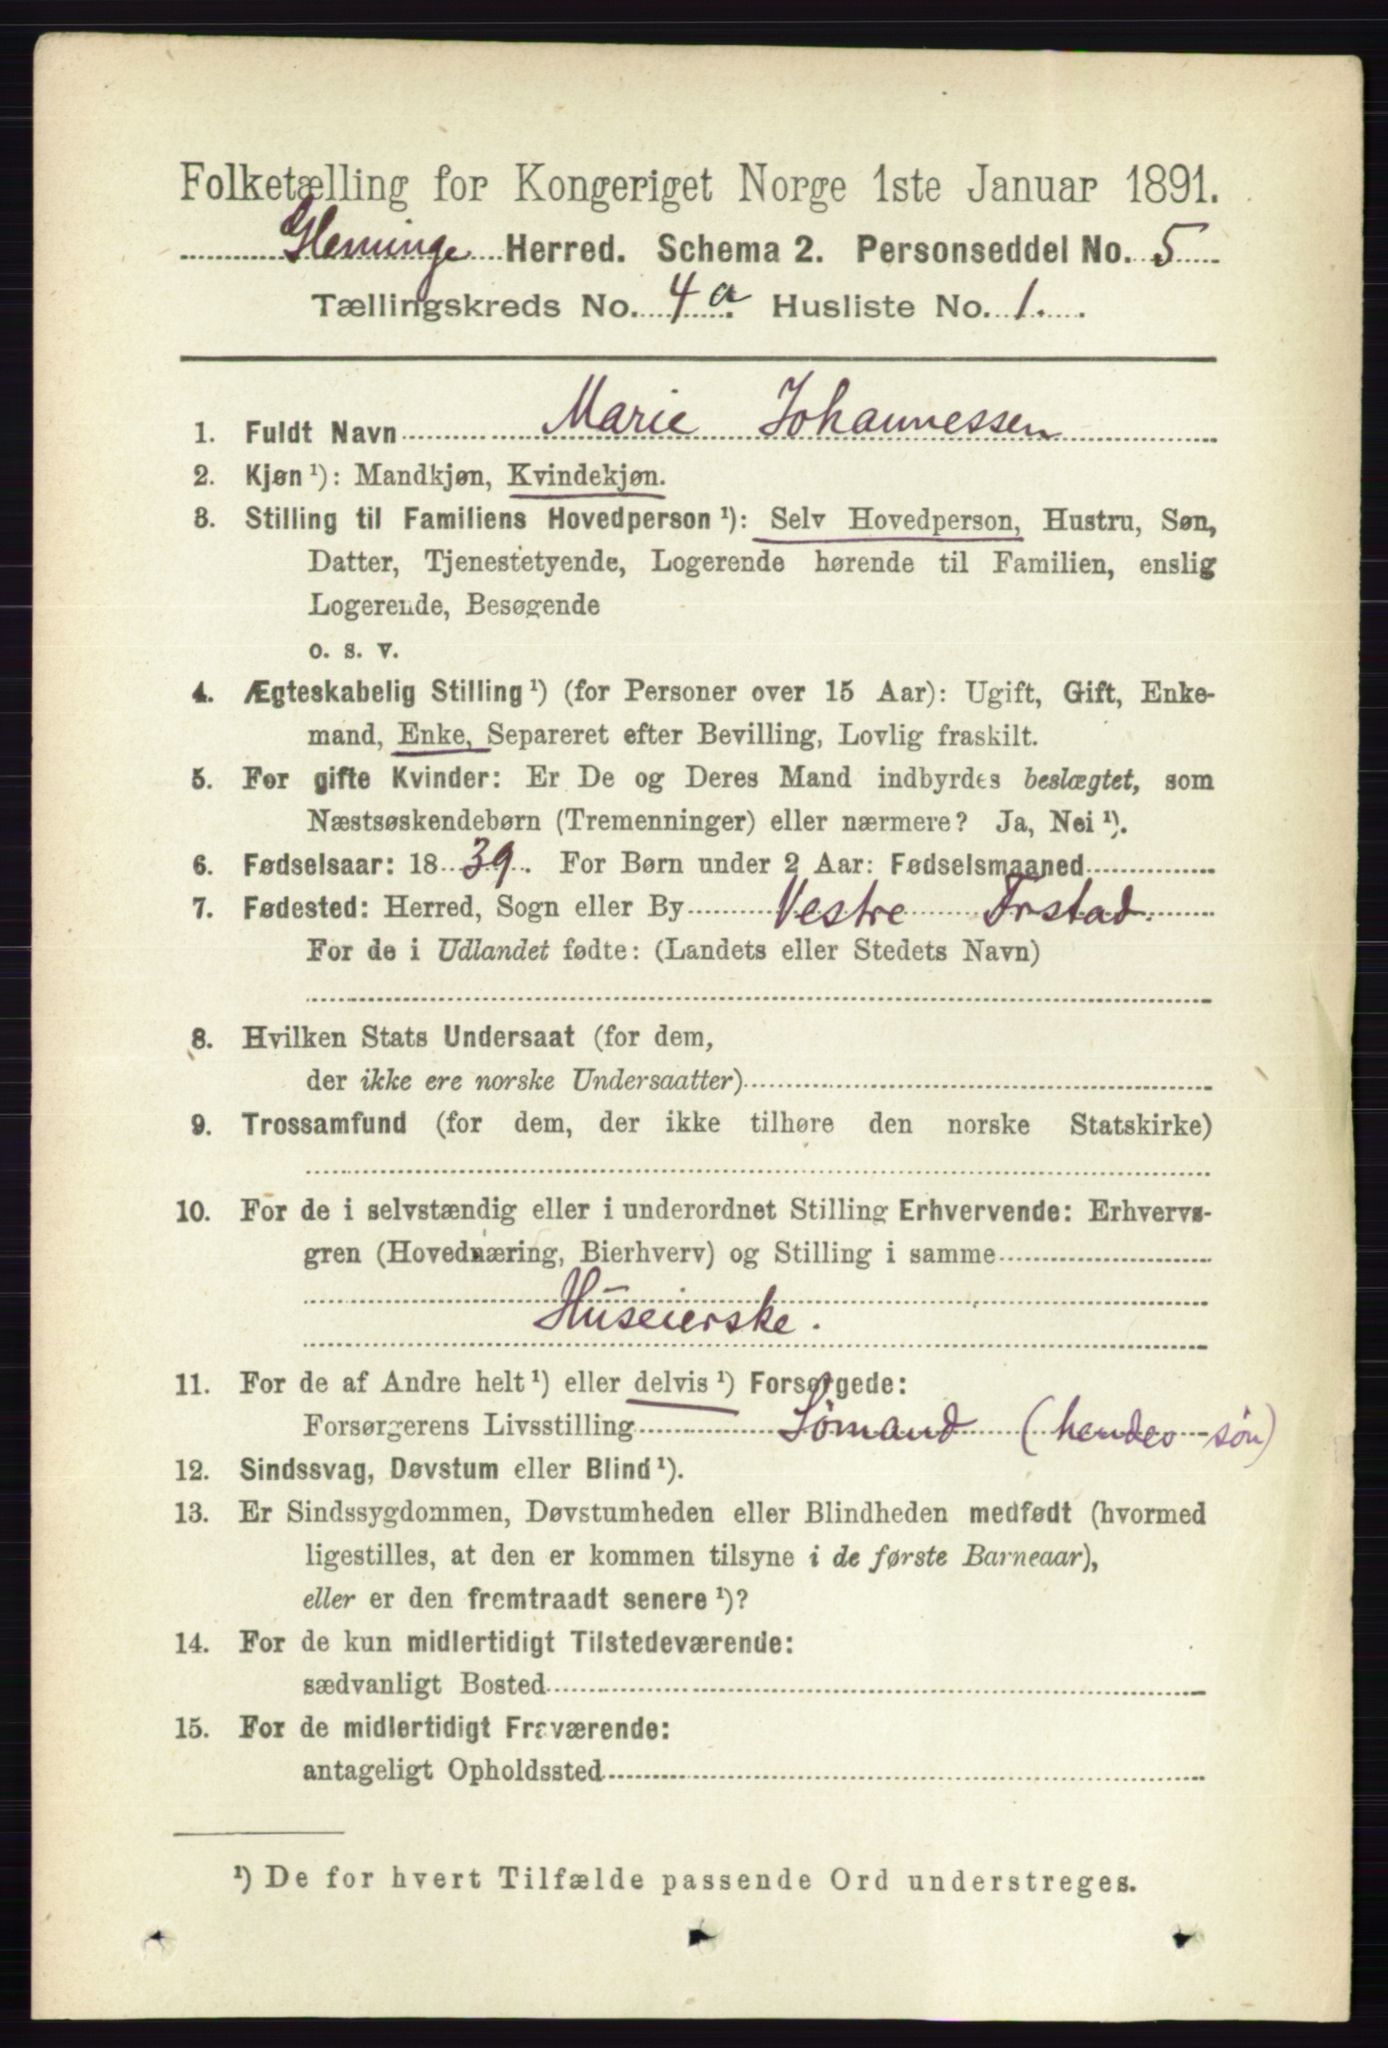 Folketælling for Kongeriget Norge 1ste Januar 1891.
Glemminge Herred. Schema 2. Personseddel No. 5
Tællingskreds No. 4a Husliste No. 1.
1. Fuldt Navn Marie Johannessen
2. Kjøn ¹): Mandkjøn, Kvindekjøn.
3. Stilling til Familiens Hovedperson ¹): Selv Hovedperson, Hustru, Søn,
Datter, Tjenestetyende, Logerende hørende til Familien, enslig
Logerende, Besøgende
o. s. v.
4. Ægteskabelig Stilling ¹) (for Personer over 15 Aar): Ugift, Gift, Enke-
mand, Enke, Separeret efter Bevilling, Lovlig fraskilt.
5. For gifte Kvinder: Er De og Deres Mand indbyrdes beslægtet, som
Næstsøskendebørn (Tremenninger) eller nærmere? Ja, Nei ¹).
6. Fødselsaar: 1839. For Børn under 2 Aar: Fødselsmaaned
7. Fødested: Herred, Sogn eller By Vestre
For de i Udlandet fødte: (Landets eller Stedets Navn)
8. Hvilken Stats Undersaat (for dem,
der ikke ere norske Undersaatter)
9. Trossamfund (for dem, der ikke tilhøre den norske Statskirke)
10. For de i selvstændig eller i underordnet Stilling Erhvervende: Erhvervs-
gren (Hovednæring, Bierhverv) og Stilling i samme
Huseierske.
11. For de af Andre helt ¹) eller delvis ¹) Forsørgede:
Forsørgerens Livsstilling Sømand (hendes søn)
12. Sindssvag, Døvstum eller Blind ¹).
13. Er Sindssygdommen, Døvstumheden eller Blindheden medfødt (hvormed
ligestilles, at den er kommen tilsyne i de første Barneaar),
eller er den fremtraadt senere ¹)?
14. For de kun midlertidigt Tilstedeværende:
sædvanligt Bosted
15. For de midlertidigt Fraværende:
antageligt Opholdssted
¹) De for hvert Tilfælde passende Ord understreges.